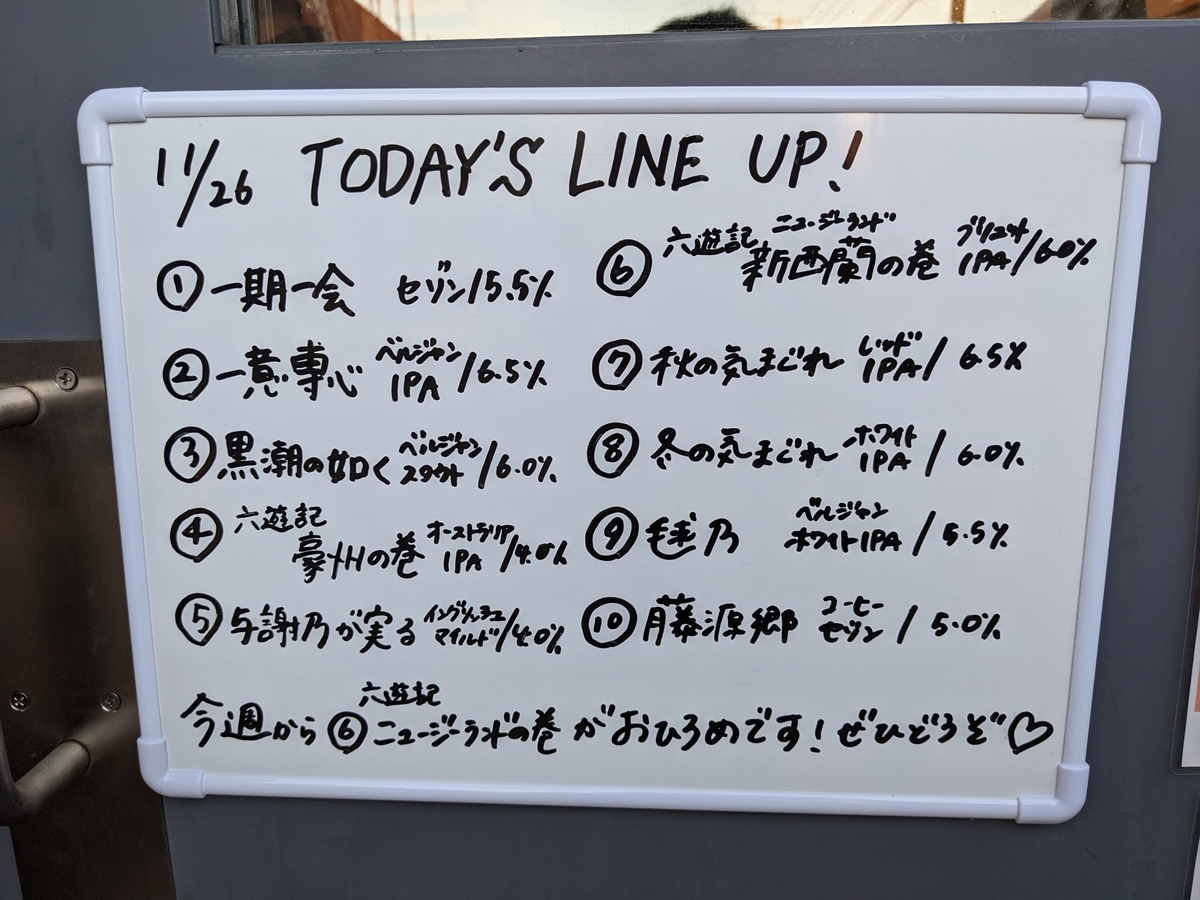 11/26 TODAY'S LINE UP!
① 一期一会 セゾン/5.5%
② 一意専心 ベルジャン IPA /6.5%
③ 黒潮の如く ベルジャン スタウト /6.0%
④ 六遊記 豪州の巻 オーストラリア IPA /4.0%
⑤ 与謝乃が実る イングリッシュ マイルド/4.0%
⑥ 六遊記 新西蘭の巻 ニュージーランド ブリュット IPA/6.0%
⑦ 秋の気まぐれ レッド IPA/ 6.5%
⑧ 冬の気まぐれ ホワイト IPA / 6.0%
⑨ 乃 ベルジャン ホワイトIPA / 5.5%
⑩ 藤源郷 コーヒー セゾン / 5.0%
六遊記
今週から⑥ニュージーランドの巻がおひろめです!ぜひどうぞ♡